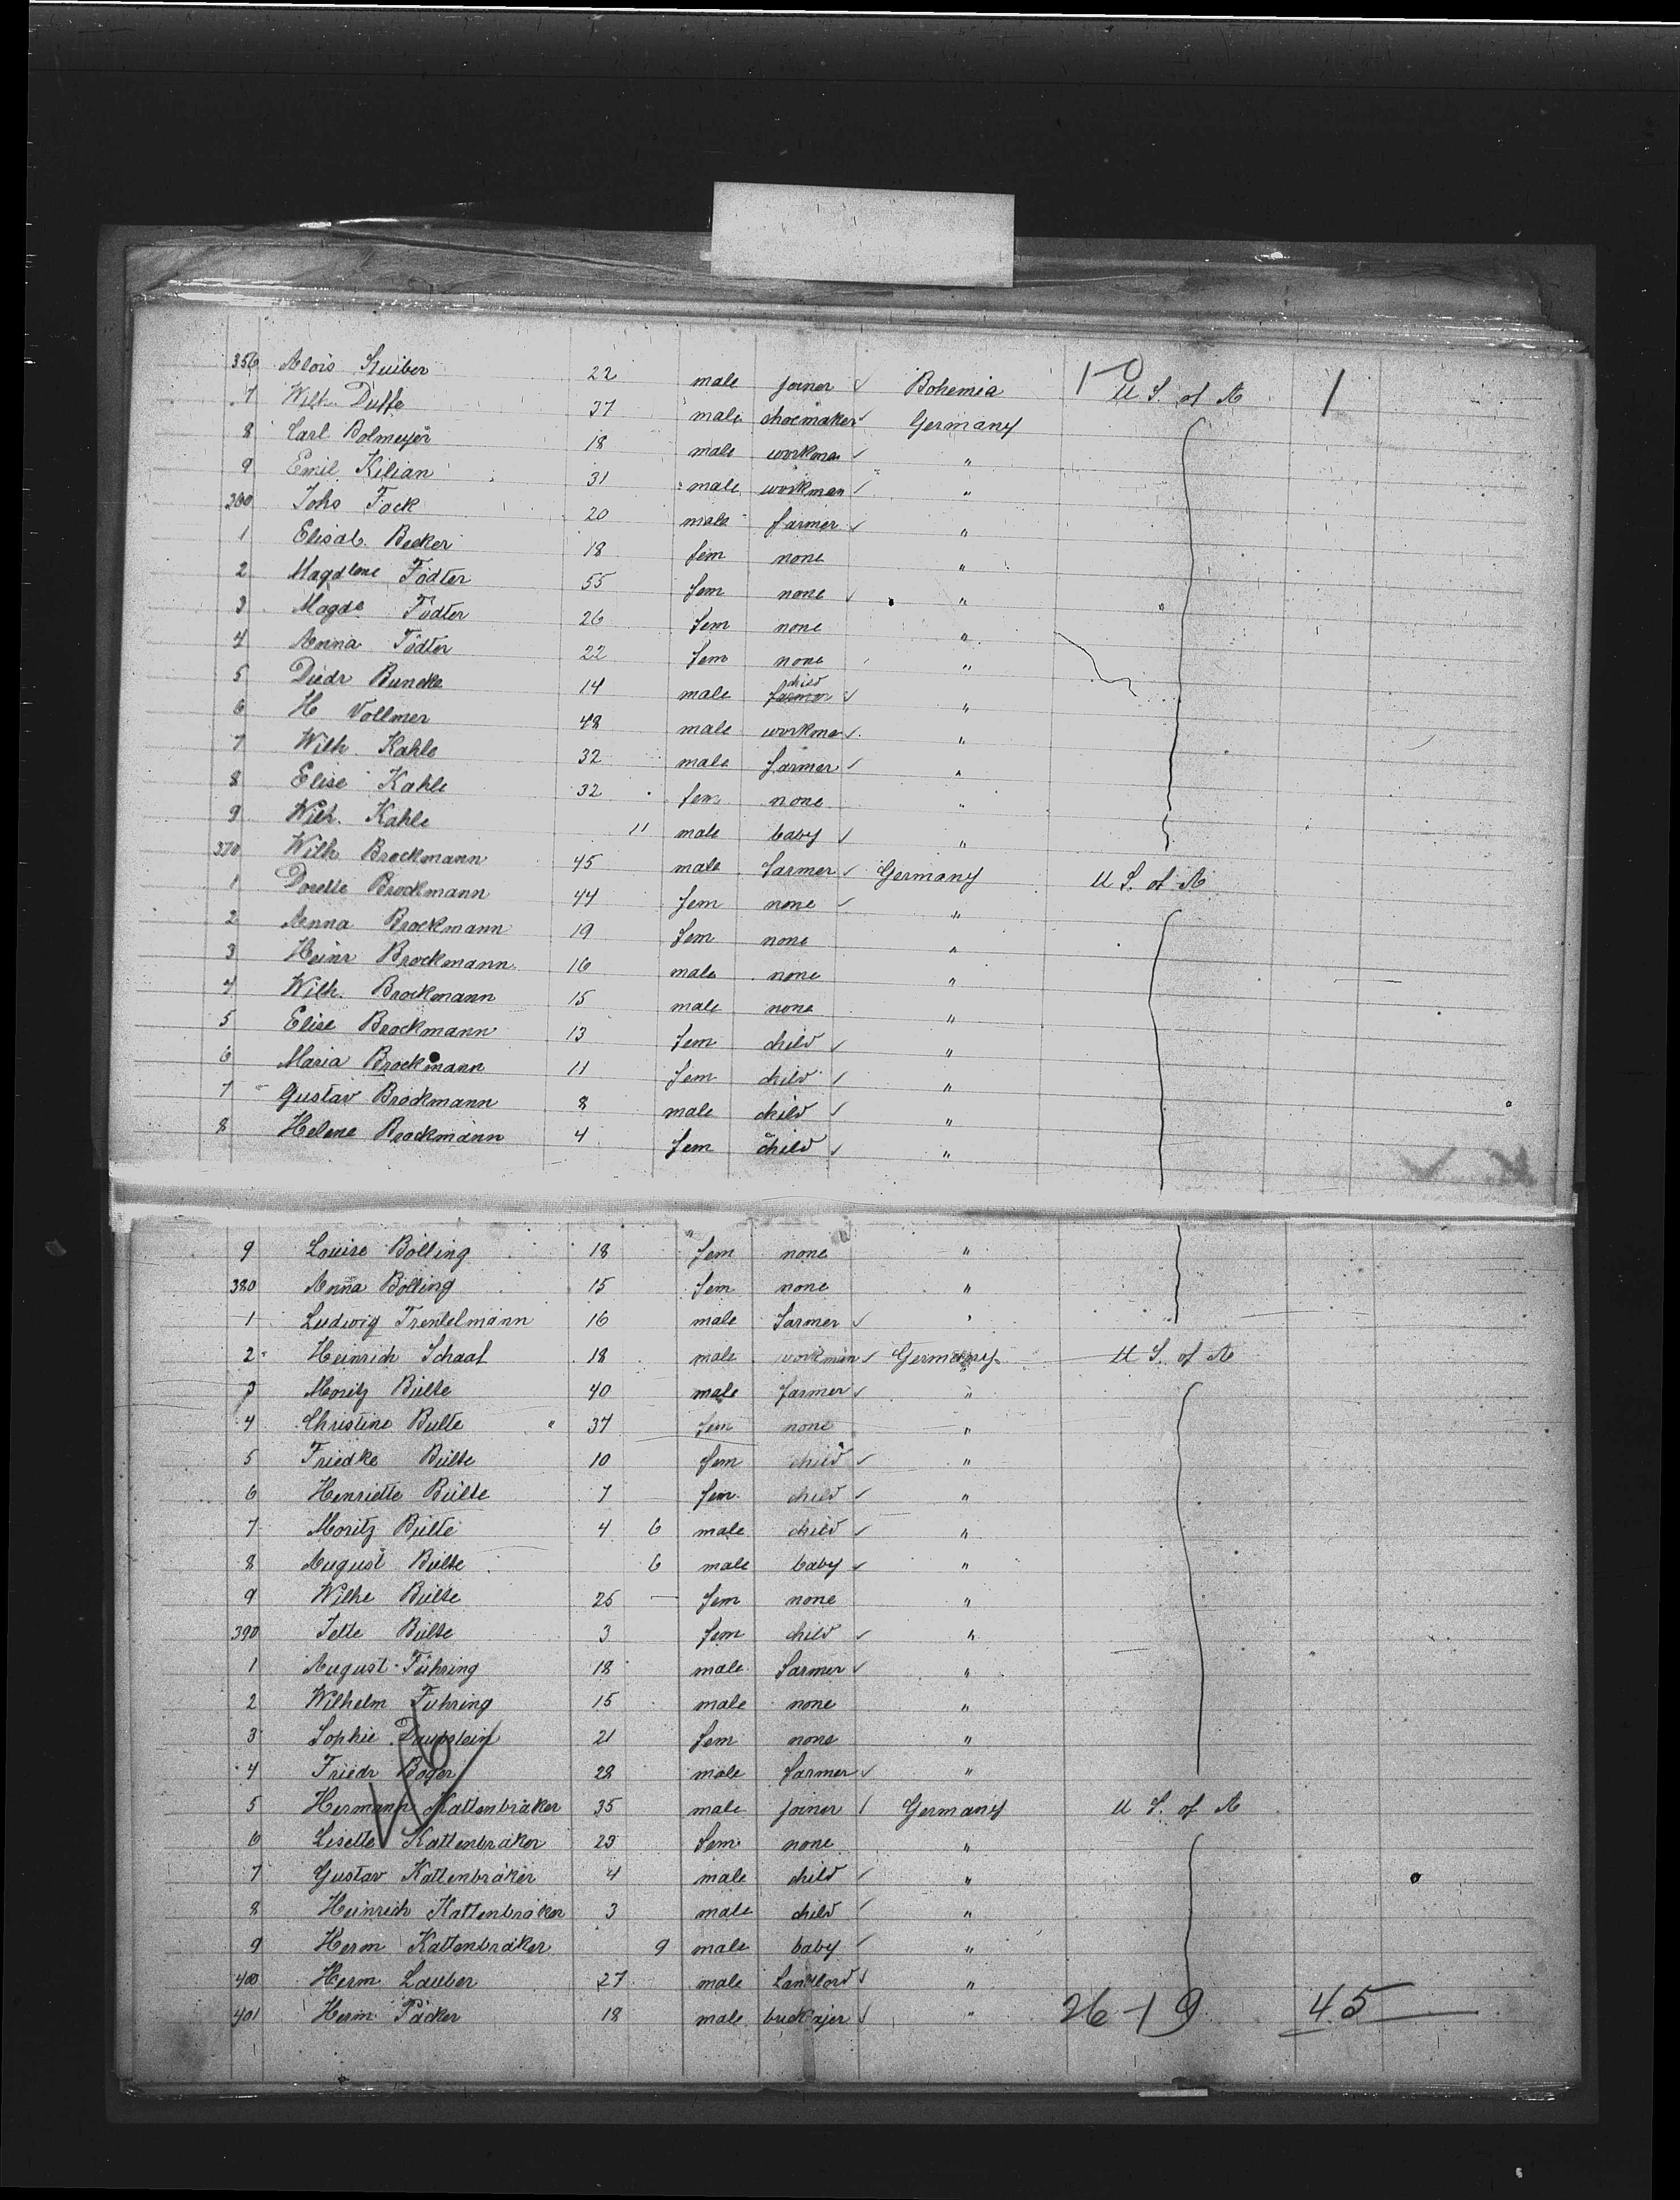 356 Alois Stuiber 22 male joiner ✓ Bohemia 1-0 U S. of A 1
7 Wilh. Duffe 37 male shoemaker ✓ Germany
8 Carl Bolmeyer 18 male workman ✓ "
9 Emil Kilian 31 male workman ✓ "
360 Johs Fack 20 male farmer ✓ "
1 Elisab. Becker 18 fem none "
2 Magdlene Tödter 55 fem none ✓ "
3 Magda Tödter 26 fem none "
4 Anna Tödter 22 fem none "
5 Diedr Buncke 14 male child ✓ "
6 H Vollmer 48 male workman ✓ "
7 Wilh. Kahle 32 male farmer ✓ "
8 Elise Kahle 32 fem none "
9 Wilh. Kahle 11 male baby ✓ "
370 Wilh Brockmann 45 male farmer ✓ Germany U S. of A
1 Dorette Brockmann 44 fem none ✓ "
2 Anna Brockmann 19 fem none "
3 Heinr Brockmann 16 male none "
4 Wilh. Brockmann 15 male none "
5 Elise Brockmann 13 fem child ✓ "
6 Maria Brockmann 11 fem child ✓ "
7 Gustav Brockmann 8 male child ✓ "
8 Helene Brockmann 4 fem child ✓ "
9 Louise Bölling 18 fem none "
380 Anna Bölling 15 fem none "
1 Ludwig Trentelmann 16 male farmer ✓ "
2 Heinrich Schaaf 18 male workman ✓ Germany U S. of A
3 Moritz Bülte 40 male farmer ✓ "
4 Christine Bülte 37 fem none "
5 Friedke Bülte 10 fem child ✓ "
6 Henriette Bülte 7 fem child ✓ "
7 Moritz Bülte 4 6 male child ✓ "
8 August Bülte 6 male baby ✓ "
9 Wilhe Bülte 25 — fem none "
390 Jette Bülte 3 fem child ✓ "
1 August Führing 18 male farmer ✓ "
2 Wilhelm Führing 15 male none "
3 Sophie 21 fem none "
4 Friedr Böger 28 male farmer ✓ "
5 Hermann Kattenbräker 35 male joiner ✓ Germany U S. of A
6 Lisette Kattenbräker 29 fem none "
7 Gustav Kattenbräker 4 male child ✓ "
8 Heinrich Kattenbräker 3 male child ✓ "
9 Herm Kattenbräker 9 male baby ✓ "
400 Herm Lauber 27 male Landlord ✓ "
401 Herm Päcker 18 male ✓ " 26-19 45